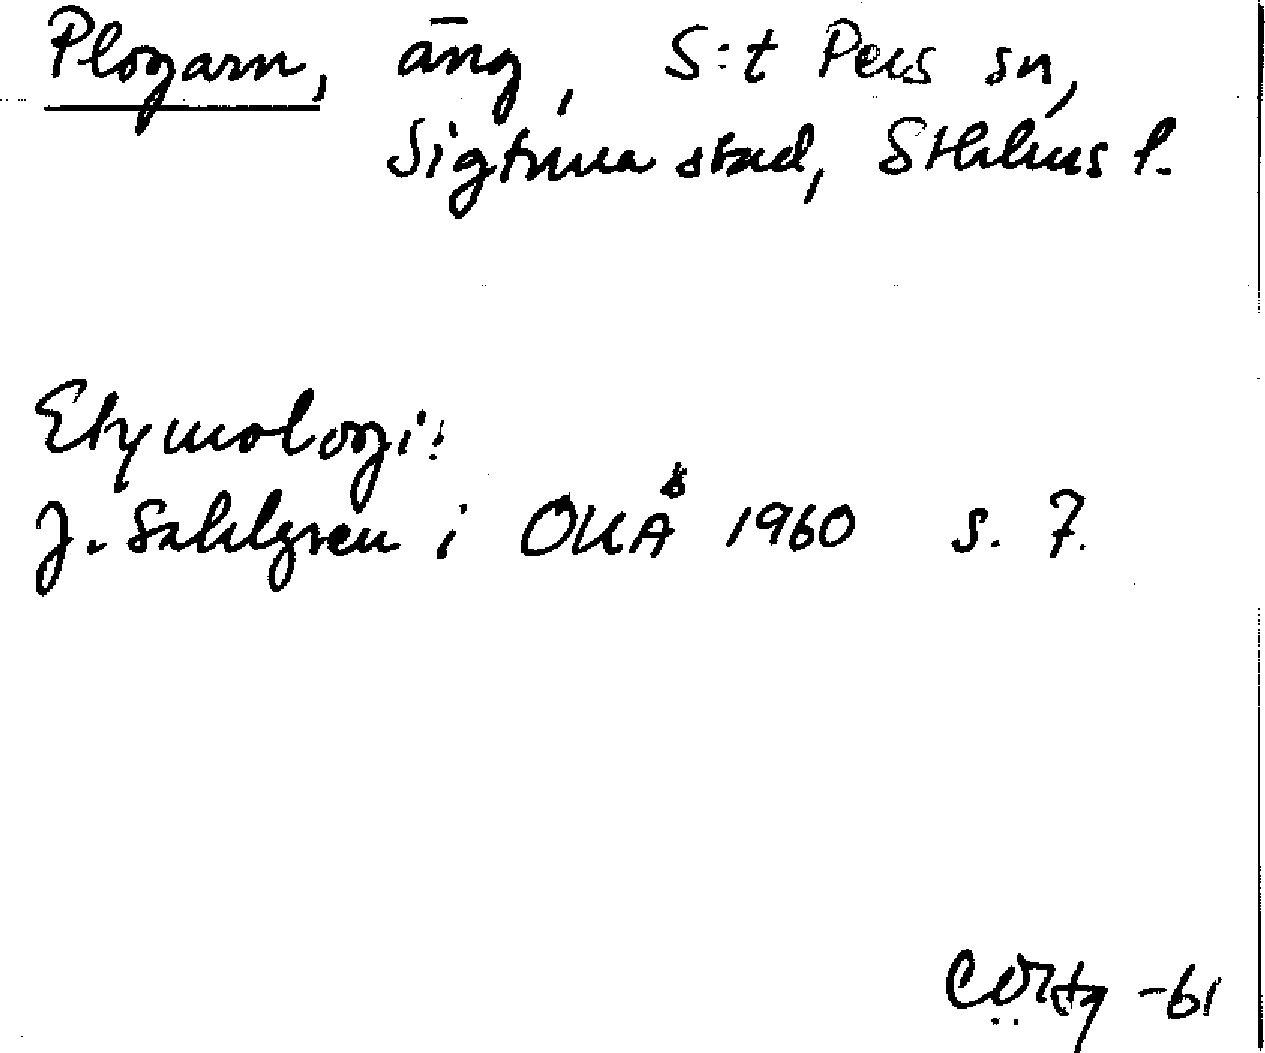 Plogarn, äng, S:t Pers sn,
Sigtuna stad, Sthlms l.
Etymologi:
J. Sahlgren i OUÅ 1960 s. 7.
-61